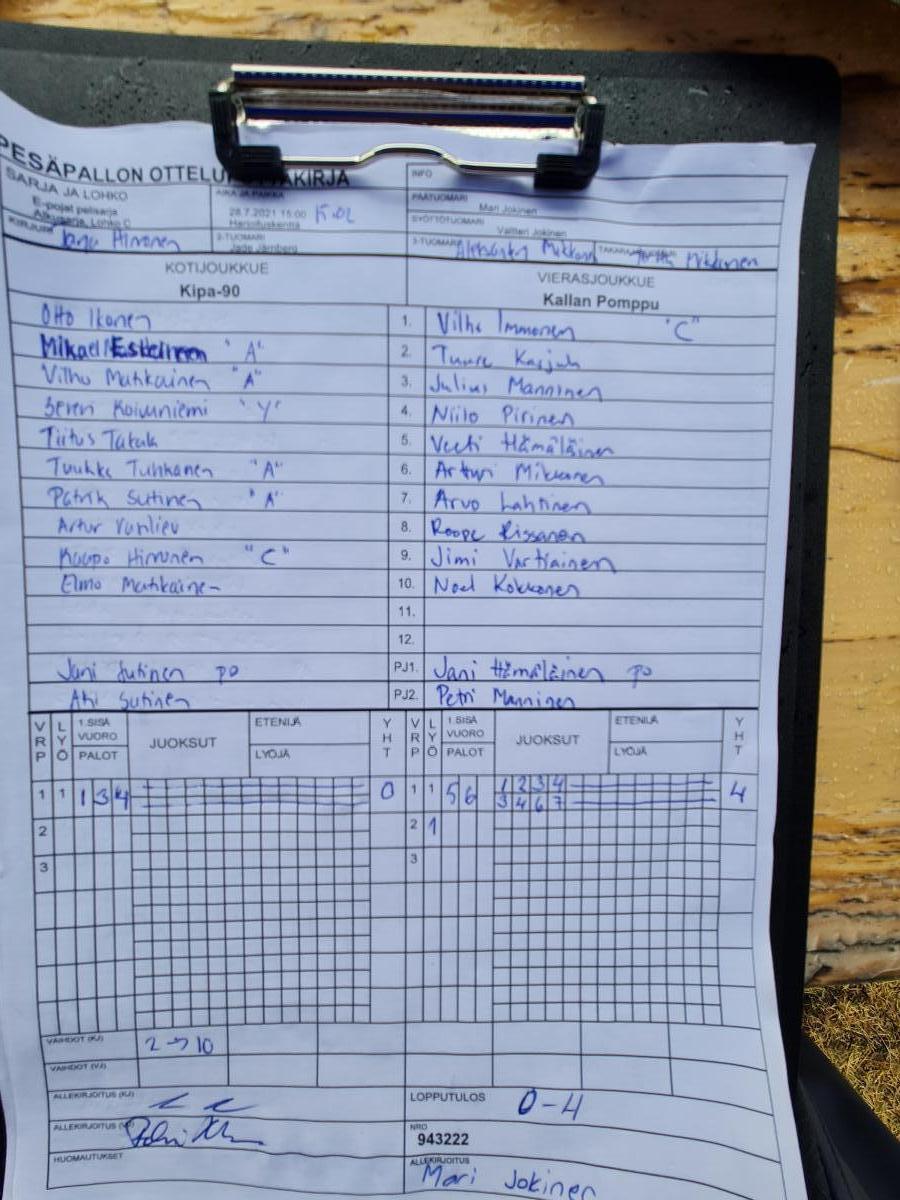 PESÄPALLON OTTELU
SARJA JA LOHKO
E-pojat pelisarja
Alkusarja, Lohko C
AIKA JA PAIKKA
28.7.2021 15:00 15.02
Harjoituskenttä
INFO
PÄÄTUOMARI
Mari Jokinen
SYÖTTÖTUOMARI
Valtteri Jokinen
KIRJURI
Hirvonen
2-TUOMARI
Jade Jämberg
3-TUOMARI
Mikkonen
KOTIJOUKKUE
Kipa-90
VIERASJOUKKUE
Kallan Pomppu
Otto Ikonen 1. Vilho Immonen "C"
Mikael Estelinen "A" 2. Tuure
Vilho Matikainen "A" 3. Julius Manninen
Severi Koivuniemi "Y" 4. Niilo Pirinen
Tiitus Takala 5. Veeti Hämäläinen
Tuukka Tuhkanen "A" 6. Artturi Mikkonen
Patrik Sutinen "A" 7. Arvo Lahtinen
Artur 8. Roope Rissanen
Kaapo Hirvonen "C" 9. Jimi Vartiainen
Elmo Matikainen 10. Noel Kokkonen
11.
12.
Jani Sutinen po PJ1. Jani Hämäläinen po
Ahi Sutinen PJ2. Petri Manninen
VRP LYÖ 1.SISÄ VUORO PALOT JUOKSUT ETENIJÄ LYÖJÄ YHT VRP LYÖ 1.SISÄ VUORO PALOT JUOKSUT ETENIJÄ LYÖJÄ YHT
1 1 1 3 4 0 1 1 5 6 1 2 3 4 4
3 4 6 7
2 2 1
3 3
VAIHDOT (KJ) 2→10
VAIHDOT (VJ)
ALLEKIRJOITUS (KJ)
LOPPUTULOS 0-4
ALLEKIRJOITUS
NRO
943222
HUOMAUTUKSET
ALLEKIRJOITUS
Mari Jokinen